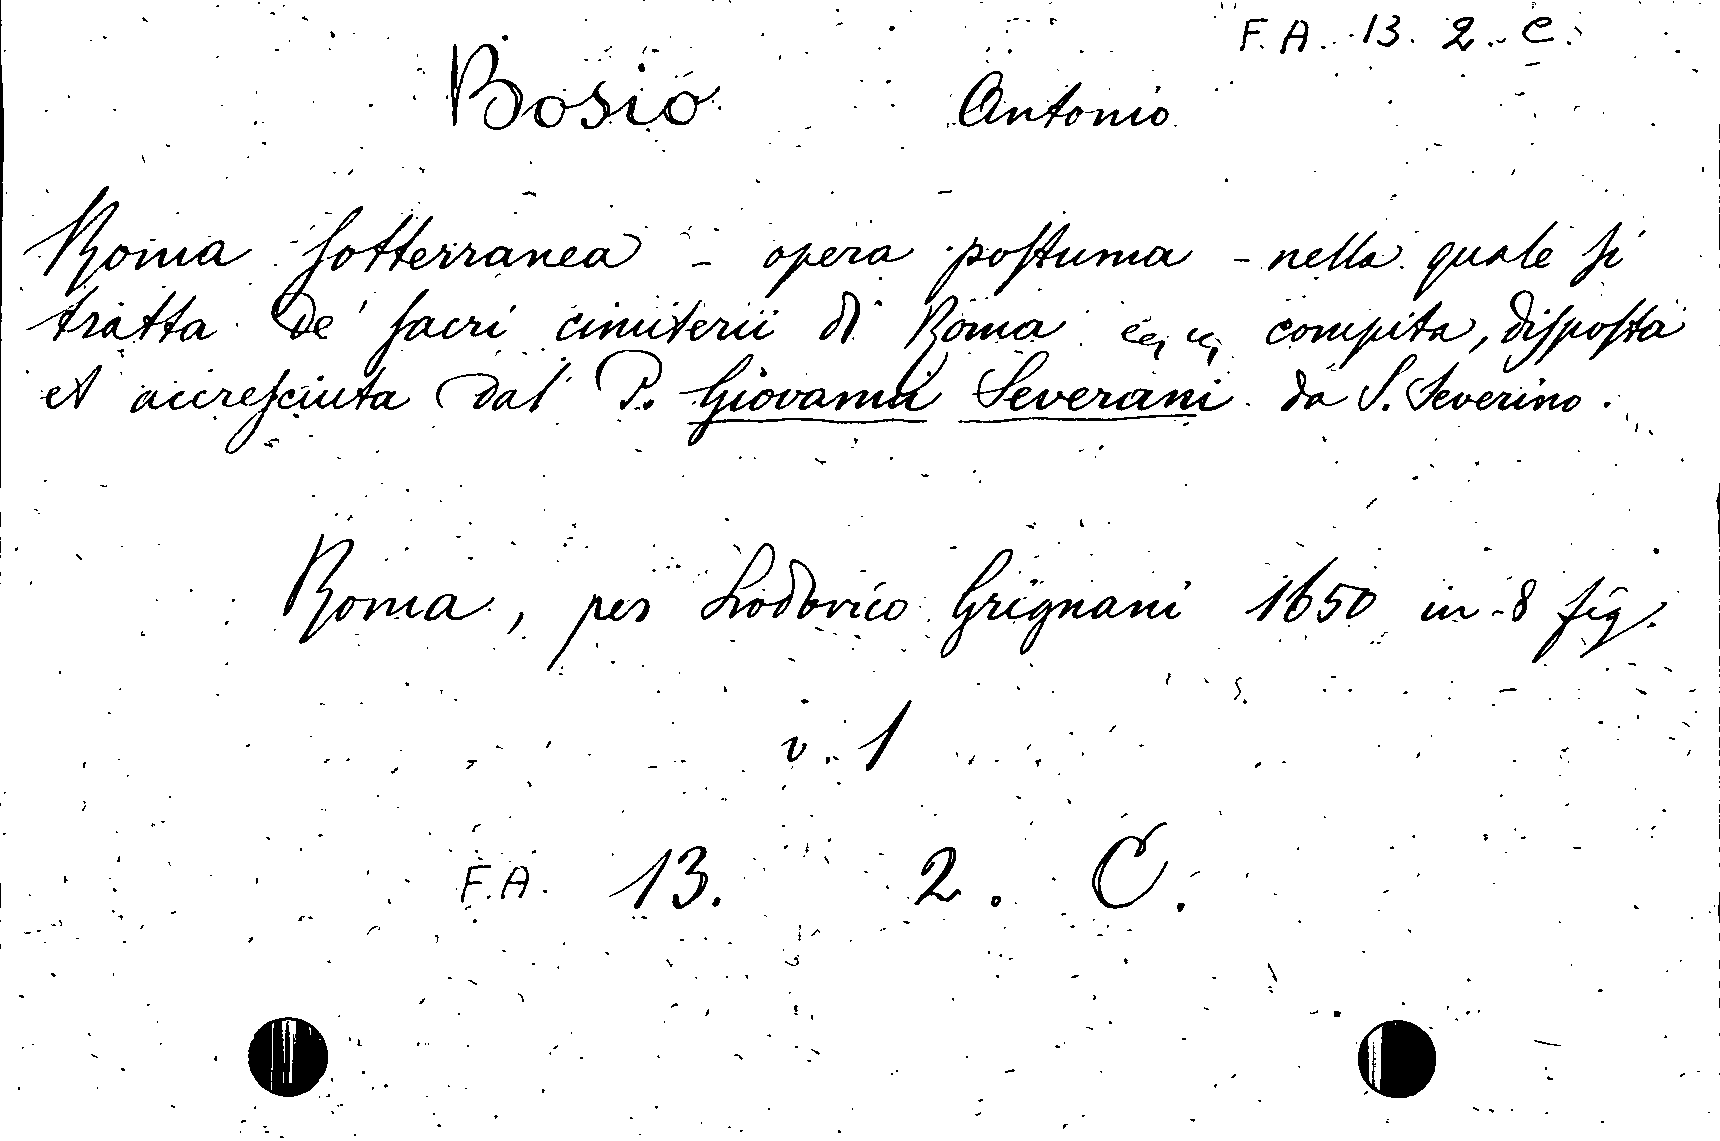 F. A. 13. 2. C.
Bosio Antonio
Roma ſotterranea - opera poſtuma - nella quale ſi
tratta de' ſacri cimiterii di Roma compita, diſpoſta
et accreſciuta dal P. Giovanni Severani da S. Severino.
Roma, per Lodovico Grignani 1650 in-8 fig.
v. 1
F.A. 13. 2. C.